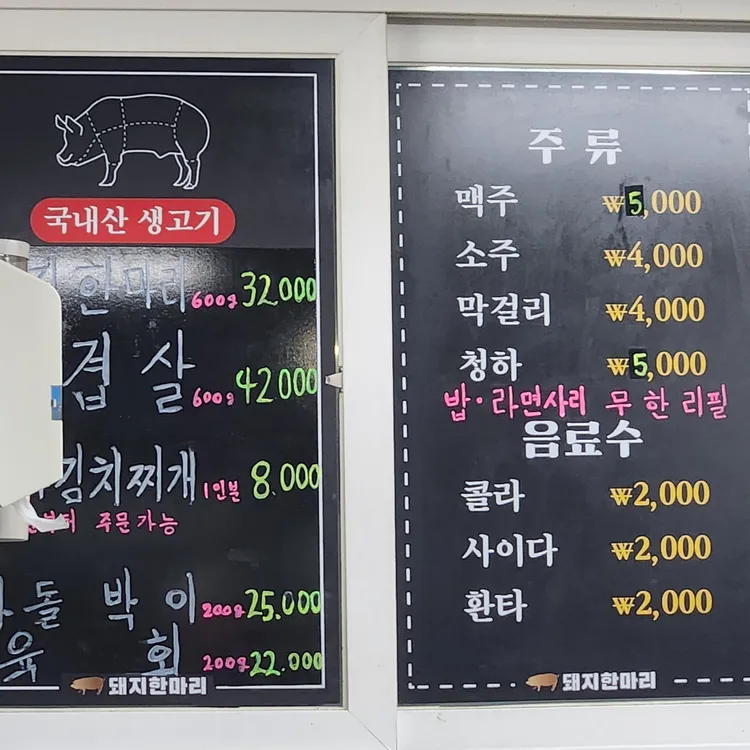 국내산 생고기
한마리 600g 32.000
겹 살 600g 42.000
김치찌개 1인분 8.000
주문가능
돌 박 이 200g 25.000
육 회 200g 22.000
돼지한마리
주 류
맥주 ₩5,000
소주 ₩4,000
막걸리 ₩4,000
청하 ₩5,000
밥·라면사리 무한리필
음료수
콜라 ₩2,000
사이다 ₩2,000
환타 ₩2,000
돼지한마리